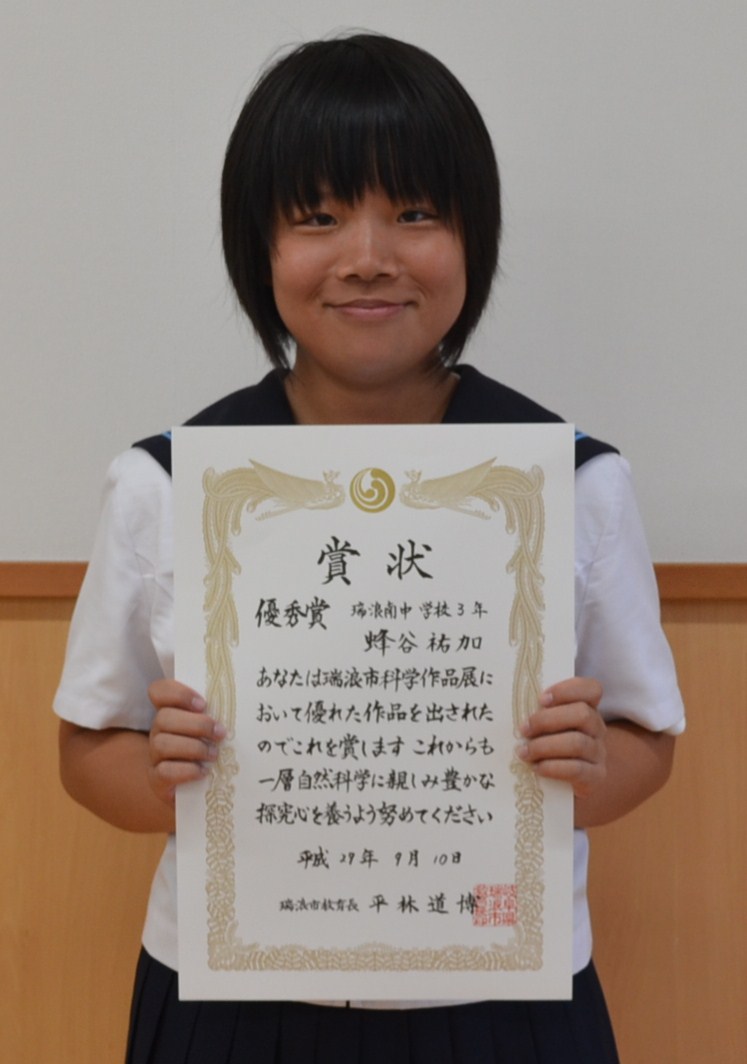 賞状
優秀賞 瑞浪南中学校3年
蜂谷祐加
あなたは瑞浪市科学作品展に
おいて優れた作品を出された
のでこれを賞します これからも
一層自然科学に親しみ豊かな
探究心を養うよう努めてください
平成29年9月10日
瑞浪市教育長 平林道博